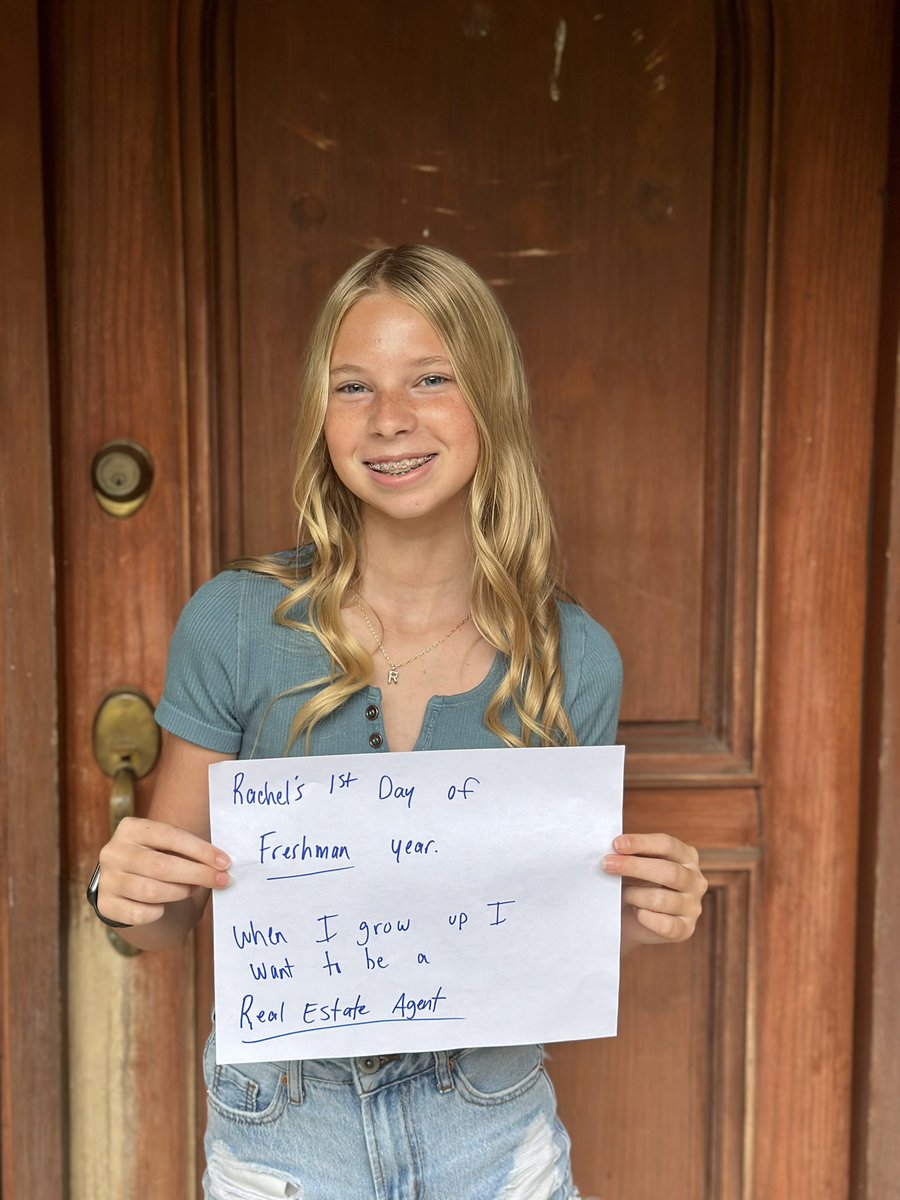 Rachel's 1st Day of
Freshman year.
When I grow up I
want to be a
Real Estate Agent
R